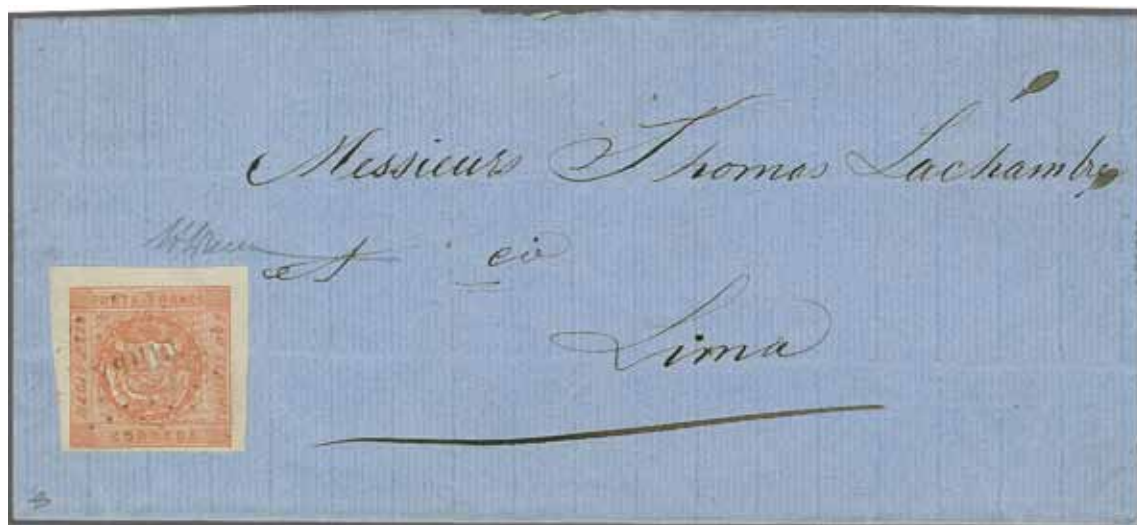 Messieurs Thomas Lachambre
et cie
Lima
PORTE FRANCO
CORREOS